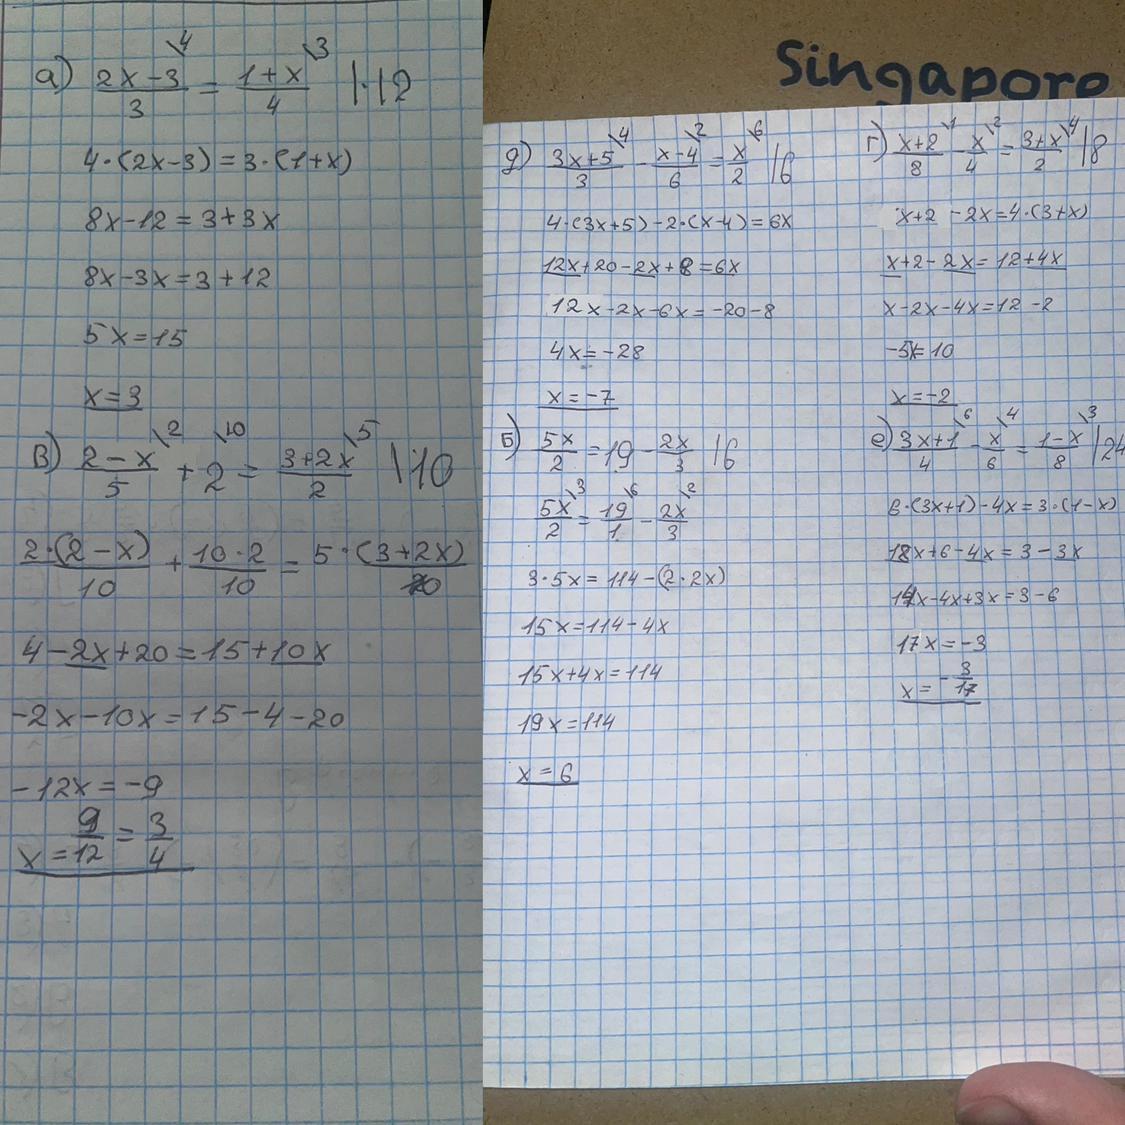 а) (2x-3)/3 \4 = (1+x)/4 \3 |·12
4·(2x-3)=3·(1+x)
8x-12=3+3x
8x-3x=3+12
5x=15
x=3
В) (2-x)/5 \2 + 2 \10 = (3+2x)/2 \5 |10
2·(2-x)/10 + 10·2/10 = 5·(3+2x)/10
4-2x+20=15+10x
-2x-10x=15-4-20
-12x=-9
x=9/12=3/4
Singapore
д) (3x+5)/3 \4 - (x-4)/6 \2 = x/2 \6 |6
4·(3x+5)-2·(x-4)=6x
12x+20-2x+8=6x
12x-2x-6x=-20-8
4x=-28
x=-7
Б) 5x/2=19-2x/3 |6
5x/2 \3 = 19/1 \6 - 2x/3 \2
3·5x=114-(2·2x)
15x=114-4x
15x+4x=114
19x=114
x=6
г) (x+2)/8 \1 - x/4 \2 = (3+x)/2 \4 |8
x+2-2x=4·(3+x)
x+2-2x=12+4x
x-2x-4x=12-2
-5x=10
x=-2
е) (3x+1)/4 \6 - x/6 \4 = (1-x)/8 \3 |24
6·(3x+1)-4x=3·(1-x)
18x+6-4x=3-3x
x-4x+3x=3-6
17x=-3
x=-3/17